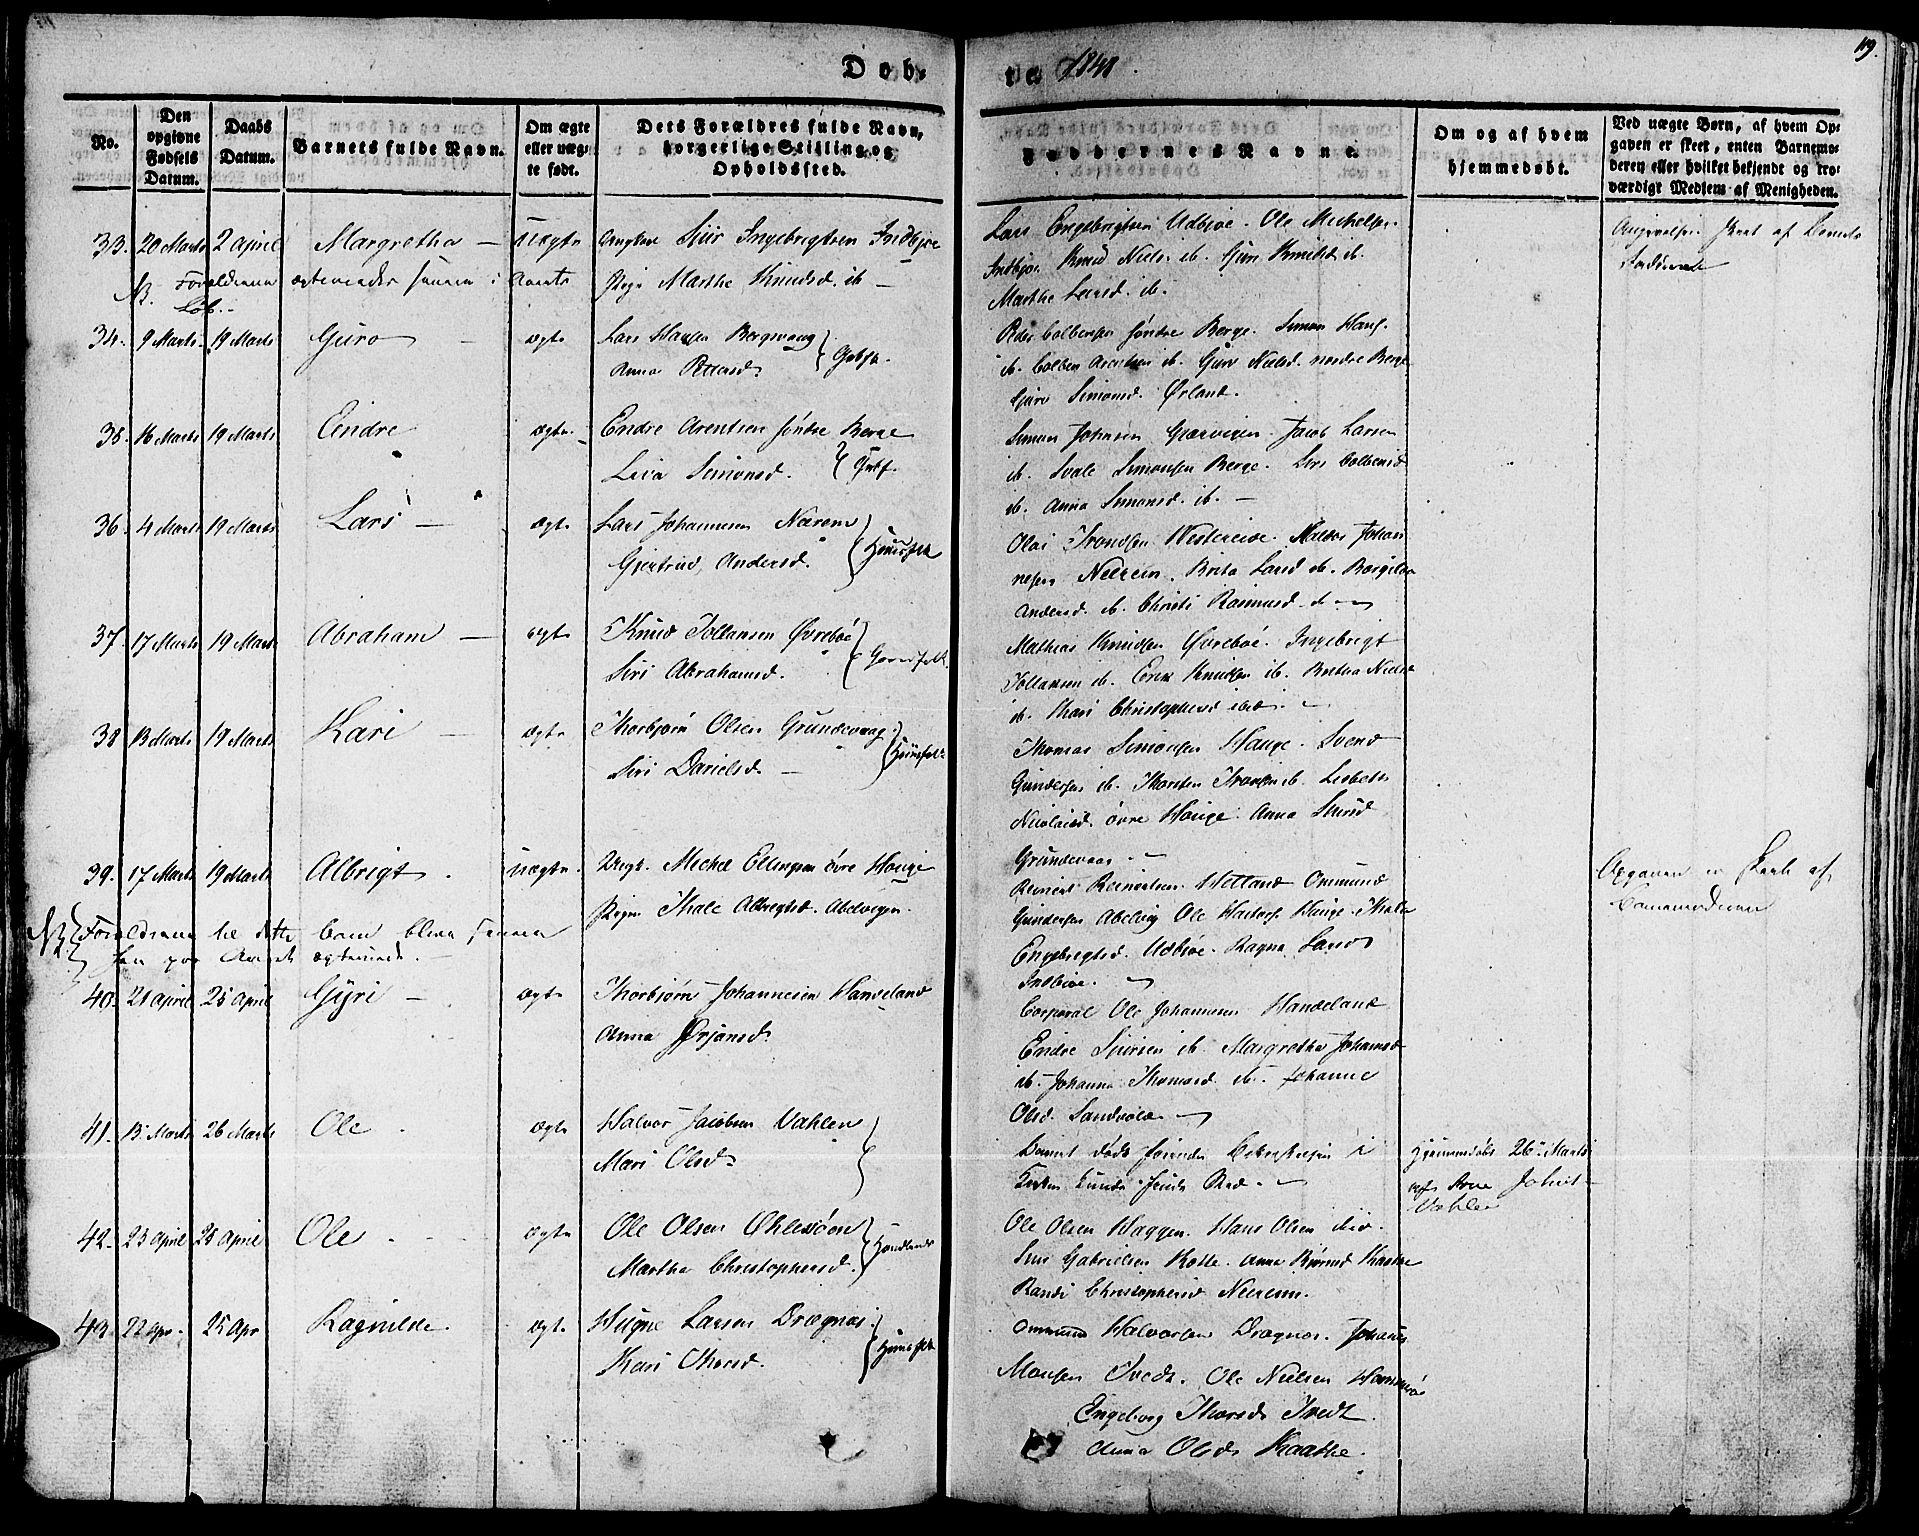 Døb-
te 1841.
119.
No.
Den opgivne Fødsels Datum.
Daabs Datum.
Barnets fulde Navn.
Om ægte eller uægte født.
Dets Forældres fulde Navn, borgerlige Stilling og Opholdssted.
Faddernes Navne.
Om og af hvem hjemmedøbt.
Ved uægte Børn, af hvem Opgaven er skeet, enten Barnemoderen eller hvilket bekjendt og troværdigt Medlem af Menigheden.
33. 20 Marts 2 April Margretha – Uægte Ungkarl Siur Ingebrigtsen Indbjoe
Pige Marthe Knudsd. ib –
NB. Forældrene ægteviede sammen i Aarets
Løb. –
Lars Engebrigtsen Udbjoe. Ole Michelsen
Indbjoe. Knud Niels. ib. Guri Knudsd ib.
Marthe Larsd. ib.
Angivelsen skeet af Barnets
34. 9 Marts 19 Marts Guro – ægte Lars Hansen Bergevaag
Anna Pettersd. Gbfk.
Peder Colbensen søndre Berge. Simon Hans.
ib. Colben Arentsen ib. Guri Nielsd. nordre Berge
Guri Simonsd. Ørland.
35. 16 Marts 19 Marts Endre ægte. Endre Arentsen søndre Berge
Lisa Simonsd. Gbf.
Simon Johnsen Gjærvigen. Jacob Larsen
ib. Svale Simonsen Berge. Siri Colbensd
ib. Anna Simonsd. ib. –
36 4 Marts 19 Marts Lars – ægte Lars Johannesen Nærem
Gjertrud Andersd. Huusfolk
Olai Trondsen Westereide. Halvor Johan
nesen Neereim. Brita Larsd ib.
Andersd. ib. Christi Rasmusd. ib –
37. 17 Marts 19 Marts Abraham – ægte Knud Tollaksen Øvreboe
Siri Abrahamsd. Gaardfolk.
Mathias Knudsen Øvreboe. Ingebrigt
Tollaksen ib. Erik Knudsen ib. Bertha Nielsd
ib. Kari Christophersd ibid. –
38 13 Marts 19 Marts Kari – ægte Thorbjørn Olsen Grundevaag
Siri Danielsd – Huusfolk
Thomas Simonsen Hauge. Svend
Gundersen ib. Thorsten Trondsen ib. Lisbeth
Nicolaisd. øvre Hauge. Anna Siursd
Grundevaag –
39. 17 Marts 19 Marts Albrigt. uægte. Ungk. Michel Ellingsen øvre Hauge
Pigen Thale Albregtsd. Abelvigen.
NB Forældrene til dette barn bleve sammen
ægteviede. –
Reinert Reinertsen Hetland Ommund
Gundersen Abelvig Ole Hauge. Thale
Engebregtsd. Udbjoe. Ragna Larsd
Indbjoe. –
Opgaven er skeet af
Barnemoderen
40. 21 April 25 April Gyri – ægte Thorbjørn Johannesen Handeland
Anna Ørjansd.
Corporal Ole Johannesen Handeland
Endre Siursen ib. Margretha Johansd
ib. Johanna Thomasd. ib. Johanne
Olsd. Sandvold –
41. 13 Marts 26 Marts Ole ægte Halvor Jacobsen Vahlen
Mari Olsd.
Barnet døde førend Bekræftelsen i
Kirken kunde finde Sted. –
Hjemmedøbt 26 Marts
af Arne Johns.
Vahlen
42. 23 April 25 April Ole. – ægte Ole Olsen Øhlesøen
Martha Christophersd. Huusfolk
Ole Olsen Haggen. Hans Olsen ibid.
Siur Gabrielsen Kolle. Anna Biørnsd Kaathe
Randi Christophersd Neereim.
43. 22 Apr. 25 Apr Ragnilde. ægte Hugne Larsen Drægnæs.
Kari Thorsd. Huusfolk
Ommund Halvorsen Drægnæs. Johannes
Monsen Tvedt. Ole Nielsen
Engeborg Thorsd. Tvedt.
Anna Olsd. Kaathe.